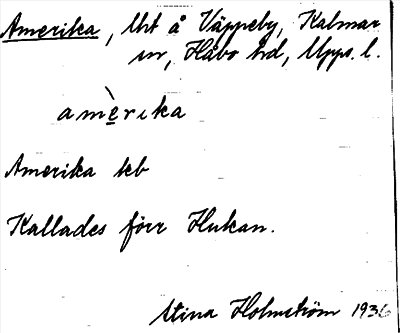 Amerika, lht å Väppeby, Kalmar
sn, Håbo hd, Upps. l.
amèrika
Amerika ekb
Kallades förr Hukan.
Stina Holmström 1936